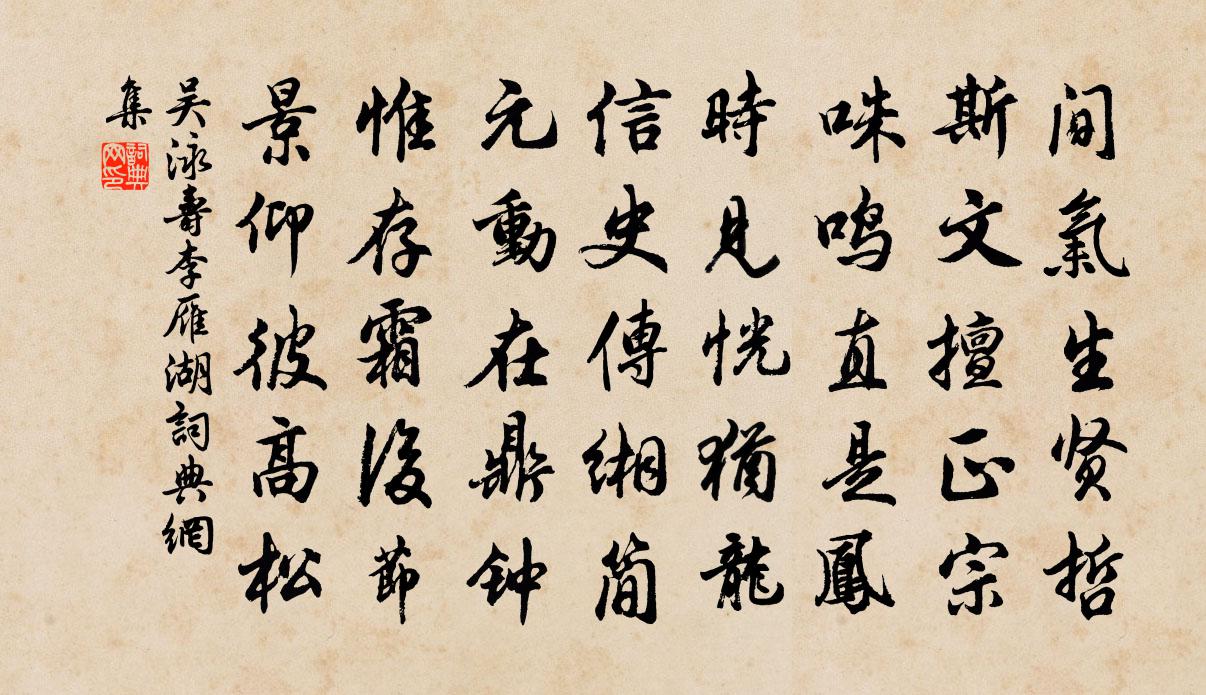 间氣生贤哲
斯文擅正宗
咮鸣直是鳳
時見恍猶龍
信史傳緗简
元動在鼎钟
惟存霜後節
景仰彼高松
吴泳壽李雁湖詞典網
集
詞典
网印